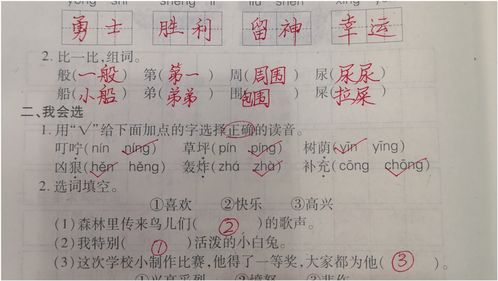 勇士 胜利 留神 幸运
2. 比一比,组词。
般(一般) 第(第一) 周(周围) 尿(尿尿)
船(小船) 弟(弟弟) 围(包围) 屎(拉屎)
二、我会选
1. 用“√”给下面加点的字选择正确的读音。
叮咛(nín níng) 草坪(pín píng) 树荫(yīn yīng)
凶狠(hěn hěng) 轰炸(zhá zhà) 补充(cōng chōng)
2. 选词填空。
①喜欢 ②快乐 ③高兴
(1)森林里传来鸟儿们(②)的歌声。
(2)我特别(①)活泼的小白兔。
(3)这次学校小制作比赛,他得了一等奖,大家都为他(③)